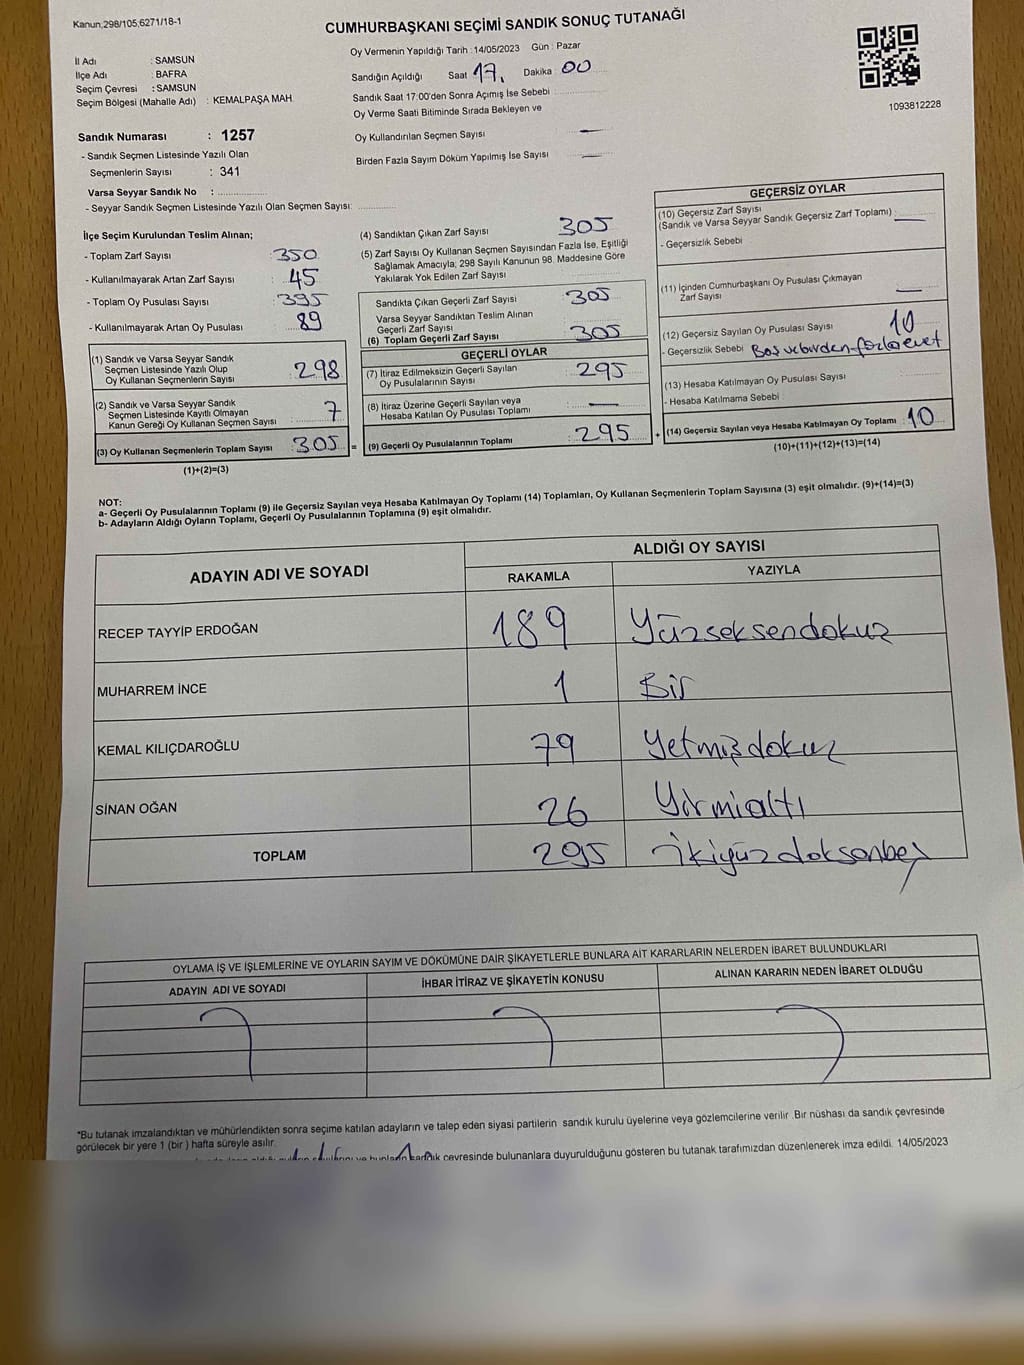 Kanun,298/105,6271/18-1
CUMHURBAŞKANI SEÇİMİ SANDIK SONUÇ TUTANAĞI
İl Adı : SAMSUN
İlçe Adı : BAFRA
Seçim Çevresi : SAMSUN
Seçim Bölgesi (Mahalle Adı) : KEMALPAŞA MAH.
Oy Vermenin Yapıldığı Tarih : 14/05/2023 Gün : Pazar
Sandığın Açıldığı Saat 17. Dakika 00
Sandık Saat 17:00'den Sonra Açımış İse Sebebi
Oy Verme Saati Bitiminde Sırada Bekleyen ve
Oy Kullandırılan Seçmen Sayısı —
Birden Fazla Sayım Döküm Yapılmış İse Sayısı —
1093812228
Sandık Numarası : 1257
- Sandık Seçmen Listesinde Yazılı Olan
Seçmenlerin Sayısı : 341
Varsa Seyyar Sandık No :
- Seyyar Sandık Seçmen Listesinde Yazılı Olan Seçmen Sayısı:
İlçe Seçim Kurulundan Teslim Alınan;
- Toplam Zarf Sayısı : 350
- Kullanılmayarak Artan Zarf Sayısı : 45
- Toplam Oy Pusulası Sayısı : 395
- Kullanılmayarak Artan Oy Pusulası : 89
(1) Sandık ve Varsa Seyyar Sandık
Seçmen Listesinde Yazılı Olup
Oy Kullanan Seçmenlerin Sayısı : 298
(2) Sandık ve Varsa Seyyar Sandık
Seçmen Listesinde Kayıtlı Olmayan
Kanun Gereği Oy Kullanan Seçmen Sayısı : 7
(3) Oy Kullanan Seçmenlerin Toplam Sayısı : 305 =
(1)+(2)=(3)
(4) Sandıktan Çıkan Zarf Sayısı 305
(5) Zarf Sayısı Oy Kullanan Seçmen Sayısından Fazla İse, Eşitliği
Sağlamak Amacıyla; 298 Sayılı Kanunun 98. Maddesine Göre
Yakılarak Yok Edilen Zarf Sayısı
Sandıkta Çıkan Geçerli Zarf Sayısı : 305
Varsa Seyyar Sandıktan Teslim Alınan
Geçerli Zarf Sayısı
(6) Toplam Geçerli Zarf Sayısı : 305
GEÇERLİ OYLAR
(7) İtiraz Edilmeksizin Geçerli Sayılan
Oy Pusulalarının Sayısı : 295
(8) İtiraz Üzerine Geçerli Sayılan veya
Hesaba Katılan Oy Pusulası Toplamı : —
(9) Geçerli Oy Pusulalarının Toplamı : 295 +
GEÇERSİZ OYLAR
(10) Geçersiz Zarf Sayısı
(Sandık ve Varsa Seyyar Sandık Geçersiz Zarf Toplamı) : —
- Geçersizlik Sebebi
(11) İçinden Cumhurbaşkanı Oy Pusulası Çıkmayan
Zarf Sayısı —
(12) Geçersiz Sayılan Oy Pusulası Sayısı 10
- Geçersizlik Sebebi Boş ve birden fazla evet
(13) Hesaba Katılmayan Oy Pusulası Sayısı
- Hesaba Katılmama Sebebi
(14) Geçersiz Sayılan veya Hesaba Katılmayan Oy Toplamı : 10
(10)+(11)+(12)+(13)=(14)
NOT:
a- Geçerli Oy Pusulalarının Toplamı (9) ile Geçersiz Sayılan veya Hesaba Katılmayan Oy Toplamı (14) Toplamları, Oy Kullanan Seçmenlerin Toplam Sayısına (3) eşit olmalıdır. (9)+(14)=(3)
b- Adayların Aldığı Oyların Toplamı, Geçerli Oy Pusulalarının Toplamına (9) eşit olmalıdır.
ADAYIN ADI VE SOYADI
ALDIĞI OY SAYISI
RAKAMLA YAZIYLA
RECEP TAYYİP ERDOĞAN 189 Yüzseksendokuz
MUHARREM İNCE 1 Bir
KEMAL KILIÇDAROĞLU 79 Yetmişdokuz
SİNAN OĞAN 26 Yirmialtı
TOPLAM 295 İkiyüzdoksanbeş
OYLAMA İŞ VE İŞLEMLERİNE VE OYLARIN SAYIM VE DÖKÜMÜNE DAİR ŞİKAYETLERLE BUNLARA AİT KARARLARIN NELERDEN İBARET BULUNDUKLARI
ADAYIN ADI VE SOYADI
İHBAR İTİRAZ VE ŞİKAYETİN KONUSU
ALINAN KARARIN NEDEN İBARET OLDUĞU
*Bu tutanak imzalandıktan ve mühürlendikten sonra seçime katılan adayların ve talep eden siyasi partilerin sandık kurulu üyelerine veya gözlemcilerine verilir. Bir nüshası da sandık çevresinde
görülecek bir yere 1 (bir ) hafta süreyle asılır.
ve bunların sandık çevresinde bulunanlara duyurulduğunu gösteren bu tutanak tarafımızdan düzenlenerek imza edildi. 14/05/2023